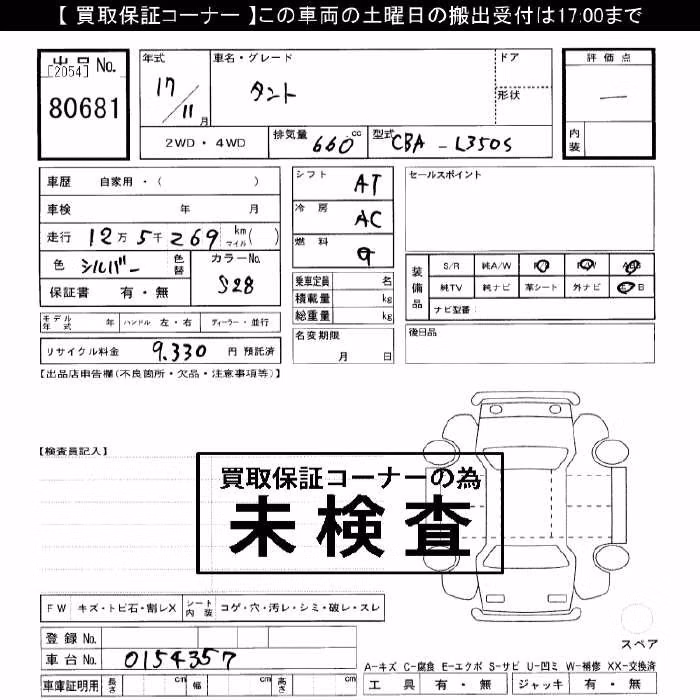 【 買取保証コーナー 】この車両の土曜日の搬出受付は17:00まで
出品 No.
[2054]
80681
年式
17/11月
車名・グレード
タント
ドア
形状
評価点
―
内装
2WD・4WD
排気量 660 cc
型式 CBA-L350S
車歴 自家用・( )
車検 年 月
走行 12万5千269 km マイル ( )
色 シルバー
色替
カラーNo.
S28
保証書 有・無
シフト AT
冷房 AC
燃料 G
乗車定員 名
積載量 kg
総重量 kg
セールスポイント
装備品
S/R 純A/W
純TV 純ナビ 革シート 外ナビ
ナビ型番:
モデル年式 年 ハンドル 左・右 ディーラー・並行
リサイクル料金 9.330 円 預託済
名変期限
月 日
後日品
【出品店申告欄(不良箇所・欠品・注意事項等)】
【検査員記入】
買取保証コーナーの為
未検査
FW キズ・トビ石・割レX シート内装 コゲ・穴・汚レ・シミ・破レ・スレ
登録 No.
車台 No. 0154357
車庫証明用 長さ cm 幅 cm 高さ cm
スペア
A-キズ C-腐食 E-エクボ S-サビ U-凹ミ W-補修 XX-交換済
工具 有・無 ジャッキ 有・無